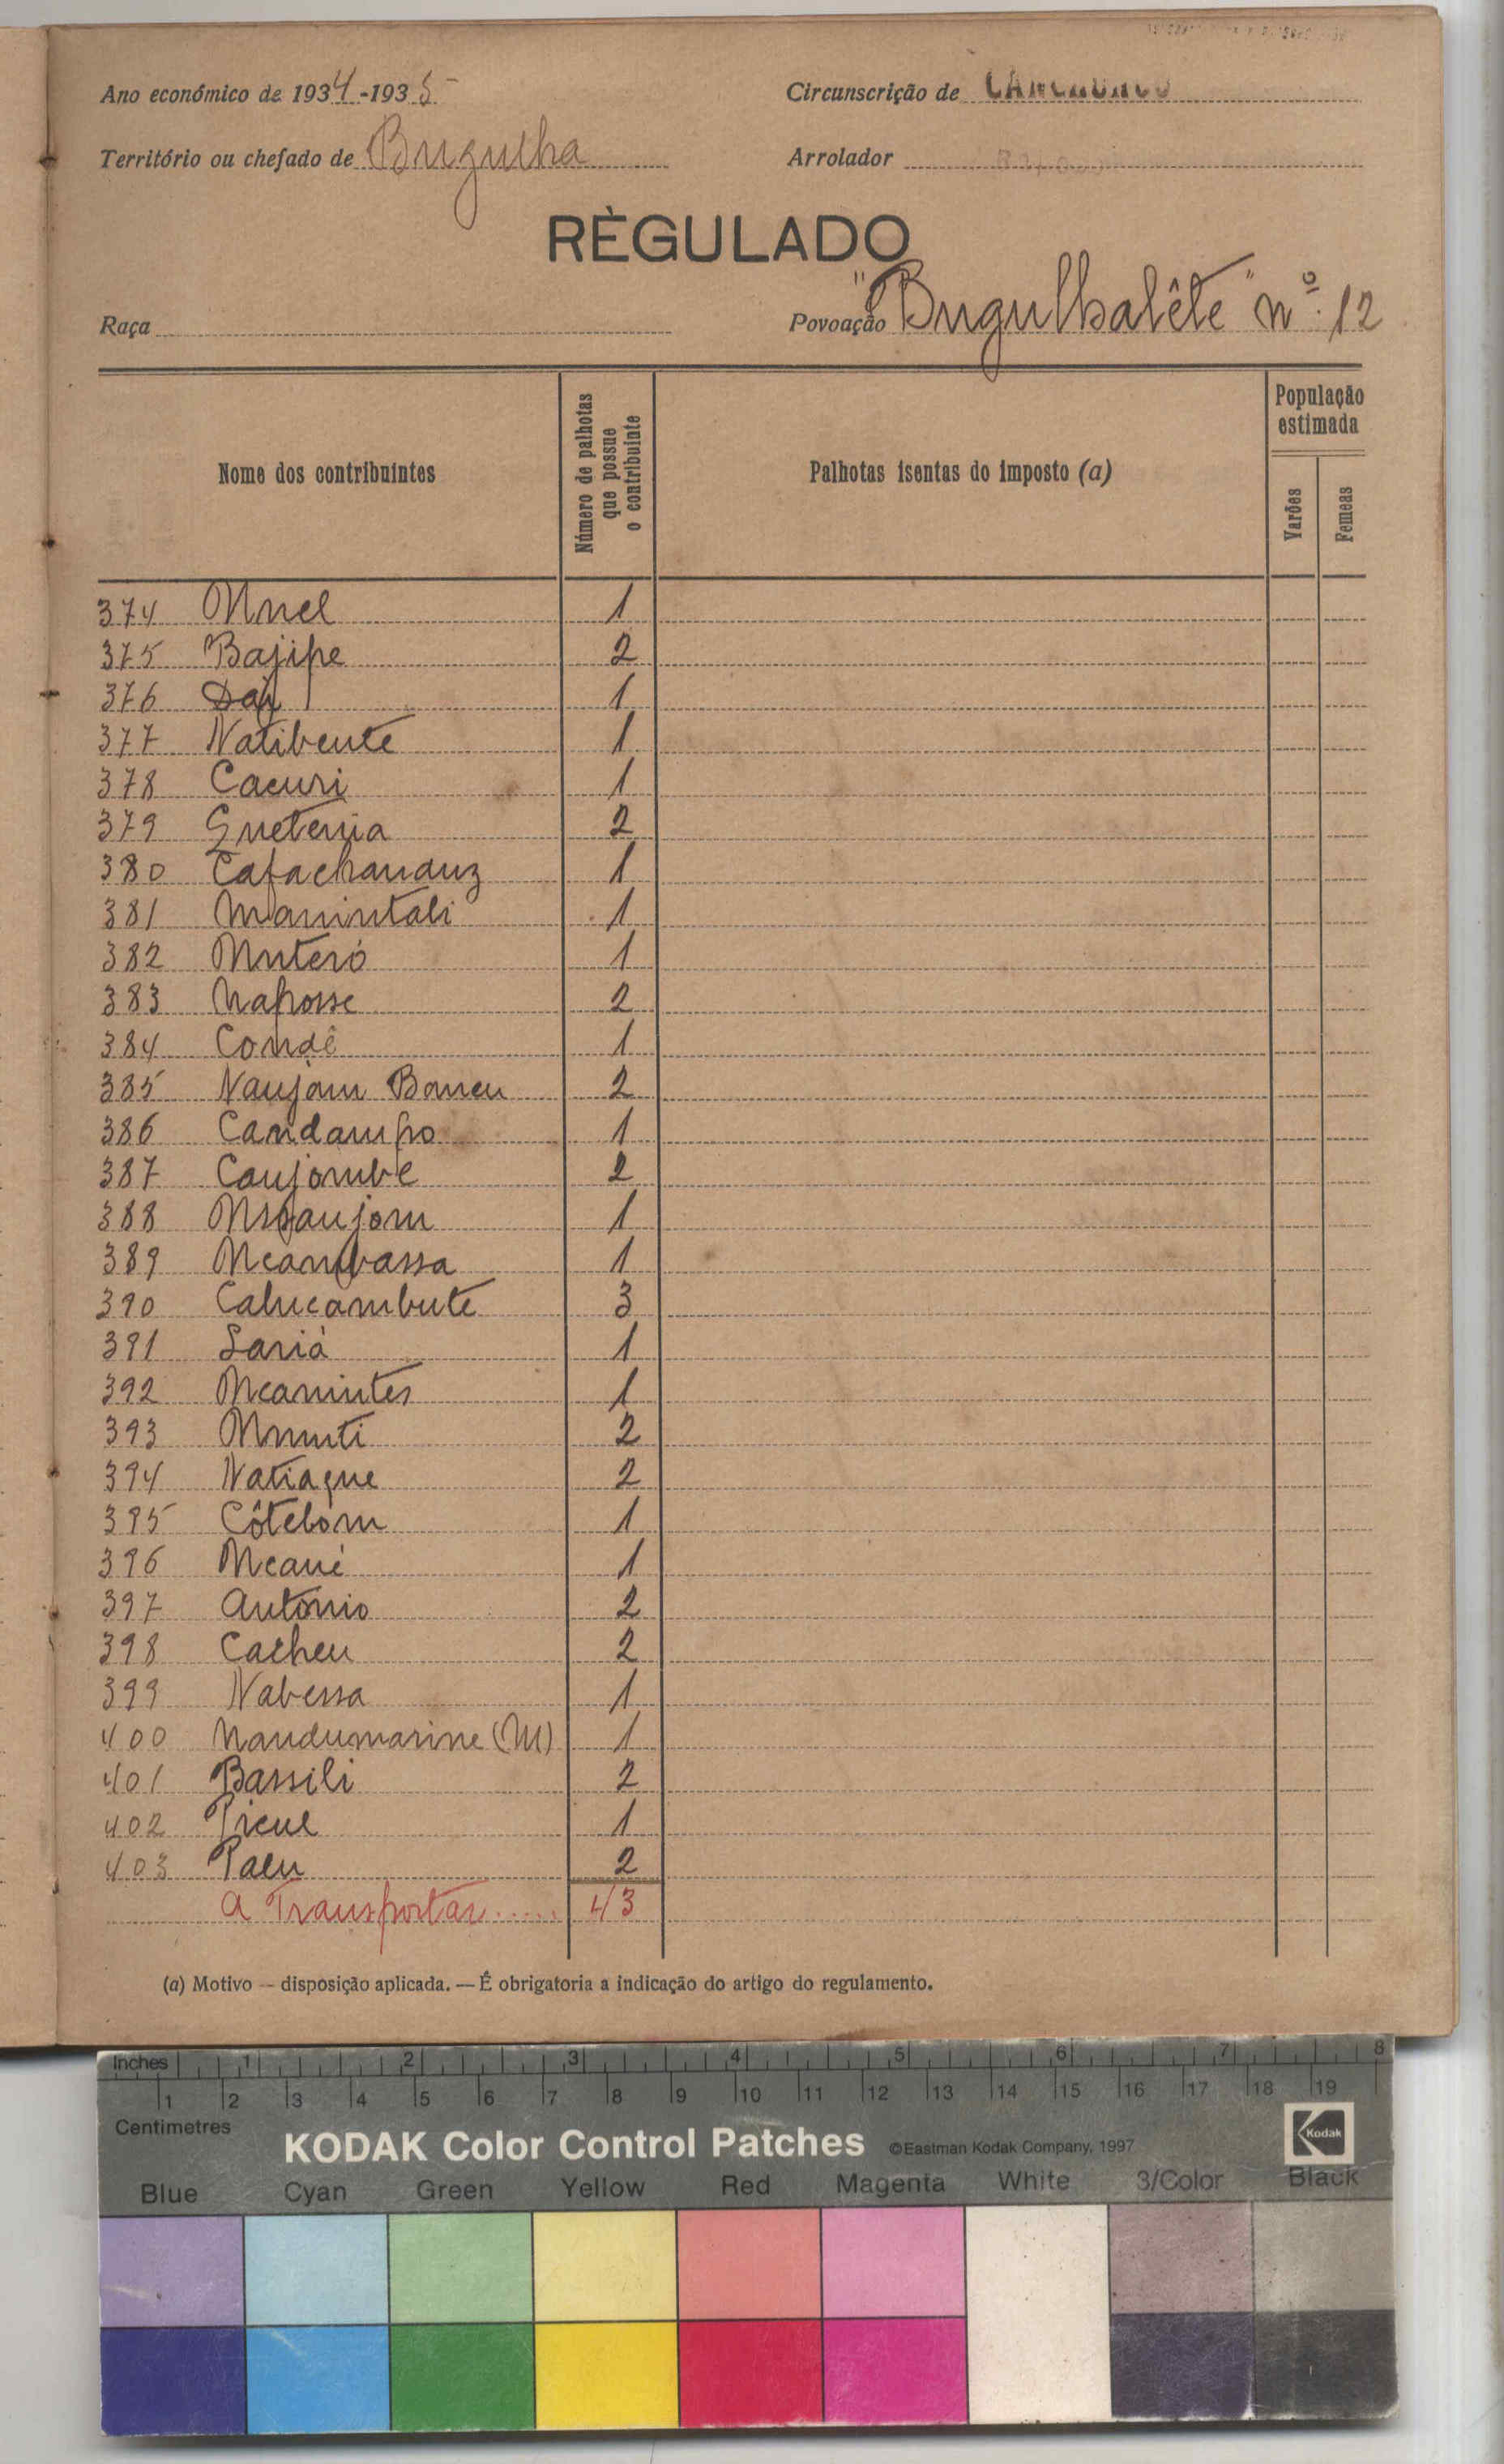 Ano económico de 1934-1935
Circunscrição de CANCHUNGO
Território ou chefado de Bugulha
Arrolador
RÈGULADO
Raça
Povoação "Bugulhalête" nº. 12
Nome dos contribuintes
Número de palhotas que possue o contribuinte
Palhotas isentas do imposto (a)
População estimada
Varões
Femeas
374 Mnel 1
375 Bajipe 2
376 1
377 Natibente 1
378 Cacuri 1
379 Guetenia 2
380 Cafachanduz 1
381 Manintali 1
382 Muteró 1
383 Naposse 2
384 Condê 1
385 Naujam Baneu 2
386 Candampo 1
387 Caujombe 2
388 1
389 Mcambassa 1
390 Calucambute 3
391 Sariá 1
392 Mcanintes 1
393 Mnuti 2
394 Natiaque 2
395 Côtebom 1
396 Mcané 1
397 Antonio 2
398 Cacheu 2
399 Nabessa 1
400 Nandumarine (M) 1
401 Bassili 2
402 1
403 Paeu 2
A Transportar..... 43
(a) Motivo — disposição aplicada. — É obrigatoria a indicação do artigo do regulamento.
Inches 1 2 3 4 5 6 7 8
1 2 3 4 5 6 7 8 9 10 11 12 13 14 15 16 17 18 19
Centimetres
KODAK Color Control Patches ©Eastman Kodak Company, 1997 Kodak
Blue Cyan Green Yellow Red Magenta White 3/Color Black